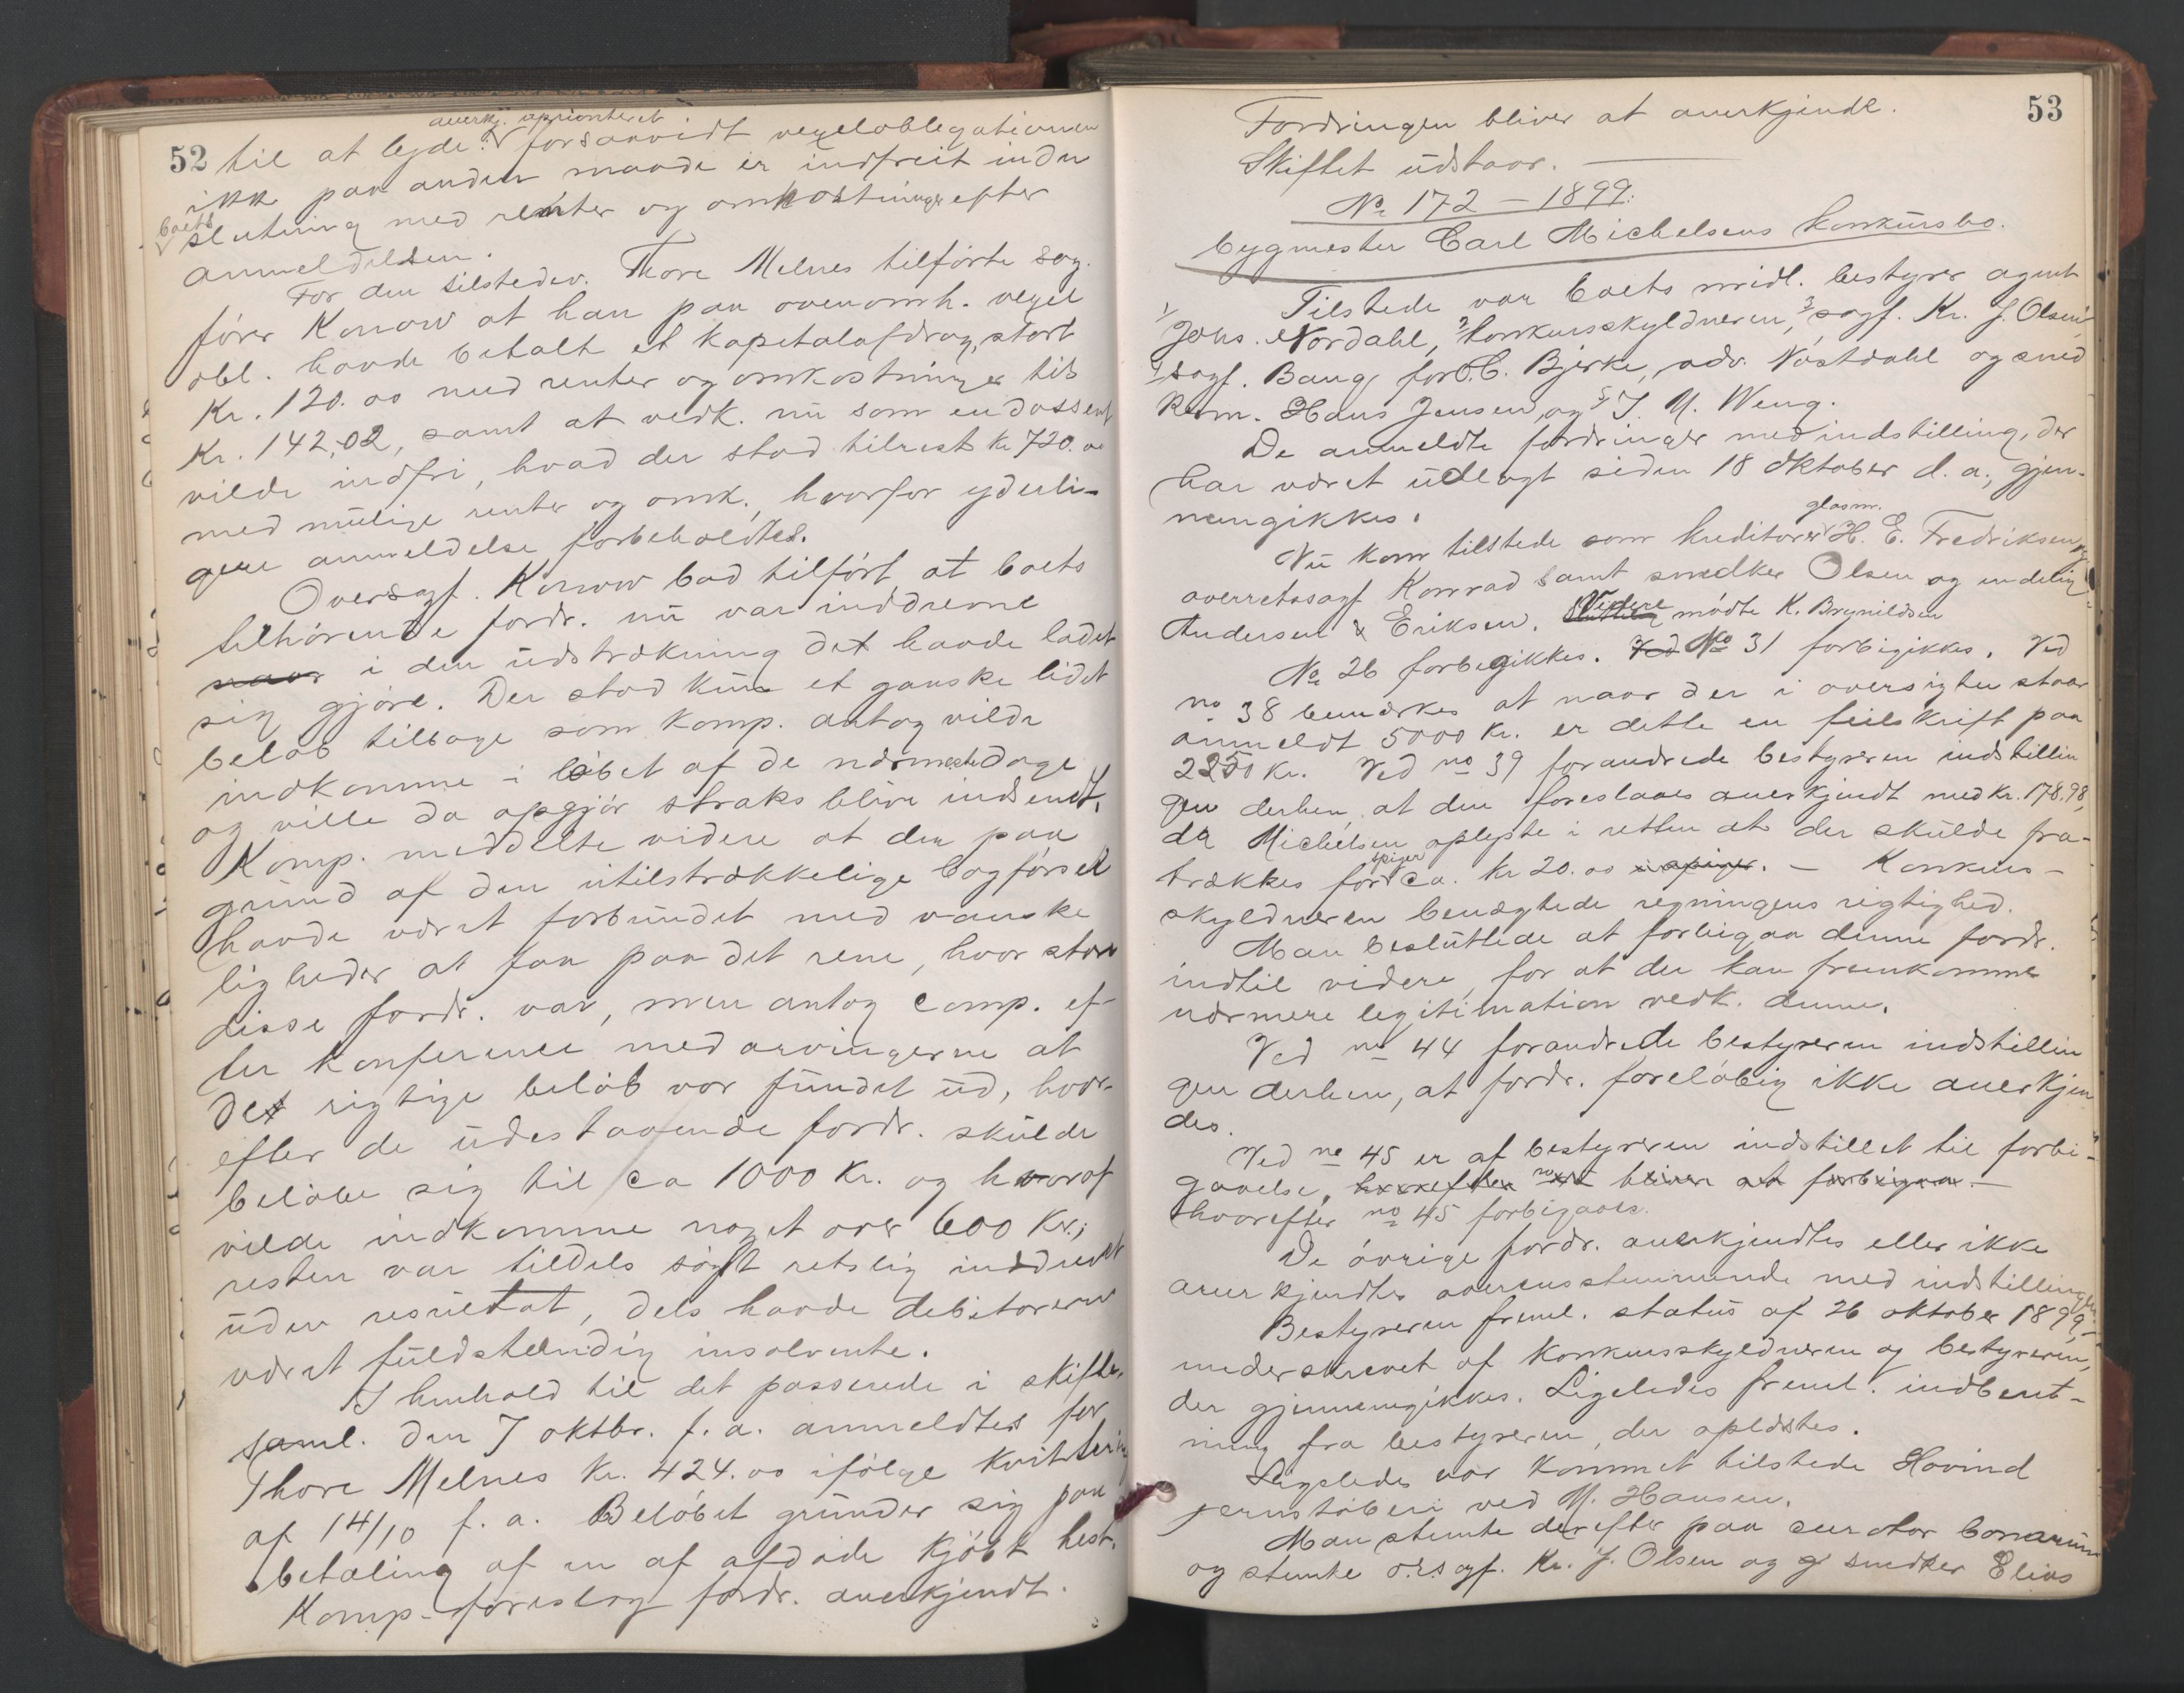 52
anerkj. uprioriteret
til at lyde: forsaavidt vexelobligationen
ikke paa anden maade er indfreit inden
boets slutning med renter og omkostninger efter
anmeldelsen.
For den tilstedev. Thore Melnes tilførte sag-
fører Konow at han paa ovenomh. vexel
obl. havde betalt et kapitalafdrag, stort
Kr. 120.00 med renter og omkostninger tils
Kr. 142,02, samt at vedk. nu som endossent
vilde indfri, hvad der stod tilrest kr 720.00
med mulige renter og omk., hvorfor yderli-
gere anmeldelse forbeholdtes.
Oversagf. Konow bad tilført at boets
tilhørende fordr. nu var inddrevne
naar i den udstrækning det havde ladet
sig gjøre. Der stod kun et ganske lidet
beløb tilbage som Komp. antog vilde
indkomme i løbet af de nærmeste dage
og ville da opgjør straks blive indsendt.
Komp. meddelte videre at den paa
grund af den utilstrækkelige bogførsel
havde været forbundet med vanske
ligheder at faa paa det rene, hvor store
disse fordr. var, men antog Comp. ef-
ter konference med arvingerne at
det rigtige beløb var fundet ud, hvor-
efter de udestaaende fordr. skulde
beløbe sig til ca 1000 Kr. og hvoraf
vilde indkomme noget over 600 Kr.;
resten var tildels søgt retslig inddrevet
uden resultat, dels havde debitorerne
været fuldstændig insolvente.
I henhold til det passerede i skifte-
saml. den 7 oktbr. f. a. anmeldtes for
Thore Melnes Kr. 424.00 ifølge kvittering
af 14/10 f. a. Beløbet grunder sig paa
betaling af en af afdøde kjøbt hest.
Komp. foreslog fordr. anerkjendt.
53
Fordringen bliver at anerkjende.
Skiftet udstaar.
No 172 – 1899.
bygmester Carl Michelsens konkursbo.
Tilstede var boets midl. bestyrer agent
1/ Johs. Nordahl, 2/ konkursskyldneren, 3/ sagf. Kr. J. Olsen,
4/ sagf. Bang for C. Bjerke, adv. Nøstdahl og sned
kerm. Hans Jensen, og 5/ J. N. Weng.
De anmeldte fordringer med indstilling, der
har været udlagt siden 18 oktober d. a., gjen-
nemgikkes.
Nu kom tilstede som kreditorer glasm. H. E. Fredriksen,
overretssagf Konrad samt snedker Olsen og endelig
Andersen & Eriksen. Videre mødte K. Brynildsen
No 26 forbigikkes. Ved No 31 forbigikkes. Ved
no 38 bemærkes at naar der i oversigten staar
anmeldt 5000 kr. er dette en feilskrift paa
2250 kr. Ved no 39 forandrede bestyreren indstillin
gen derhen, at den foreslaaes anerkjendt med kr. 178,98,
da Michelsen oplyste i retten at der skulde fra-
trækkes for spiger ca. kr 20.00 i spiger. – Konkurs-
skyldneren benægtede regningens rigtighed.
Man besluttede at forbigaa denne fordr.
indtil videre, for at der kan fremkomme
nærmere legitimation vedk. denne.
Ved no 44 forandrede bestyreren indstillin
gen derhen, at fordr. foreløbig ikke anerkjen
des.
Ved no 45 er af bestyreren indstillet til forbi-
gaaelse, hvorefter no 45 bliver at forbigaa. –
hvorefter no 45 forbigaaes.
De øvrige fordr. anerkjendtes eller ikke
anerkjendtes overensstemmende med indstillingen.
Bestyreren freml. status af 26 oktober 1899,
underskrevet af konkursskyldneren og bestyreren,
der gjennemgikkes. Ligeledes freml. indberet-
ning fra bestyreren, der oplæstes.
Ligeledes var kommet tilstede Hovind
jernstøberi ved M. Hansen.
Man stemte derefter paa curator bonorum
og stemte o.r.sagf. Kr. J. Olsen og snedker Elias